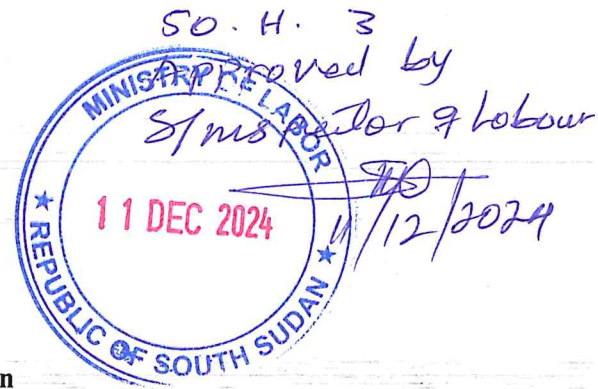 SO. H. 3
Approved by
S/Inspector of Labour
11/12/2024
MINISTRY OF LABOR
11 DEC 2024
★ REPUBLIC OF SOUTH SUDAN ★
n